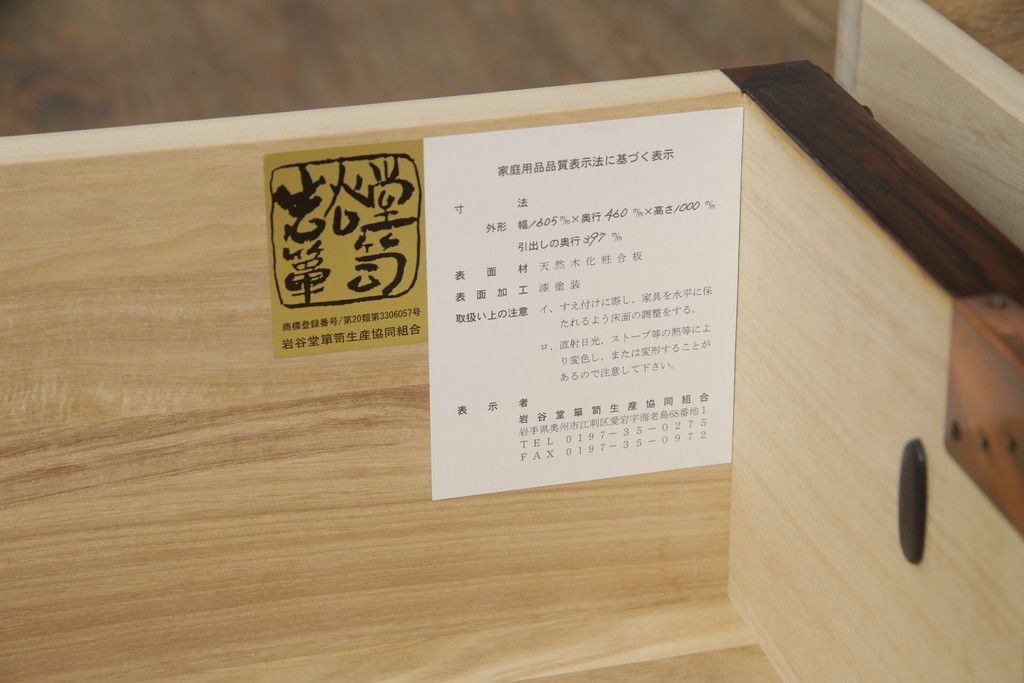 岩谷堂箪笥
商標登録番号/第20類第3306057号
岩谷堂箪笥生産協同組合
家庭用品品質表示法に基づく表示
寸法
外形 幅1605㎜×奥行460㎜×高さ1000㎜
引出しの奥行397㎜
表面材 天然木化粧合板
表面加工 漆塗装
取扱い上の注意 イ、すえ付けに際し、家具を水平に保
たれるよう床面の調整をする。
ロ、直射日光、ストーブ等の熱等によ
り変色し、または変形することが
あるので注意して下さい。
表示者
岩谷堂箪笥生産協同組合
岩手県奥州市江刺区愛宕字海老島68番地1
TEL 0197-35-0275
FAX 0197-35-0972